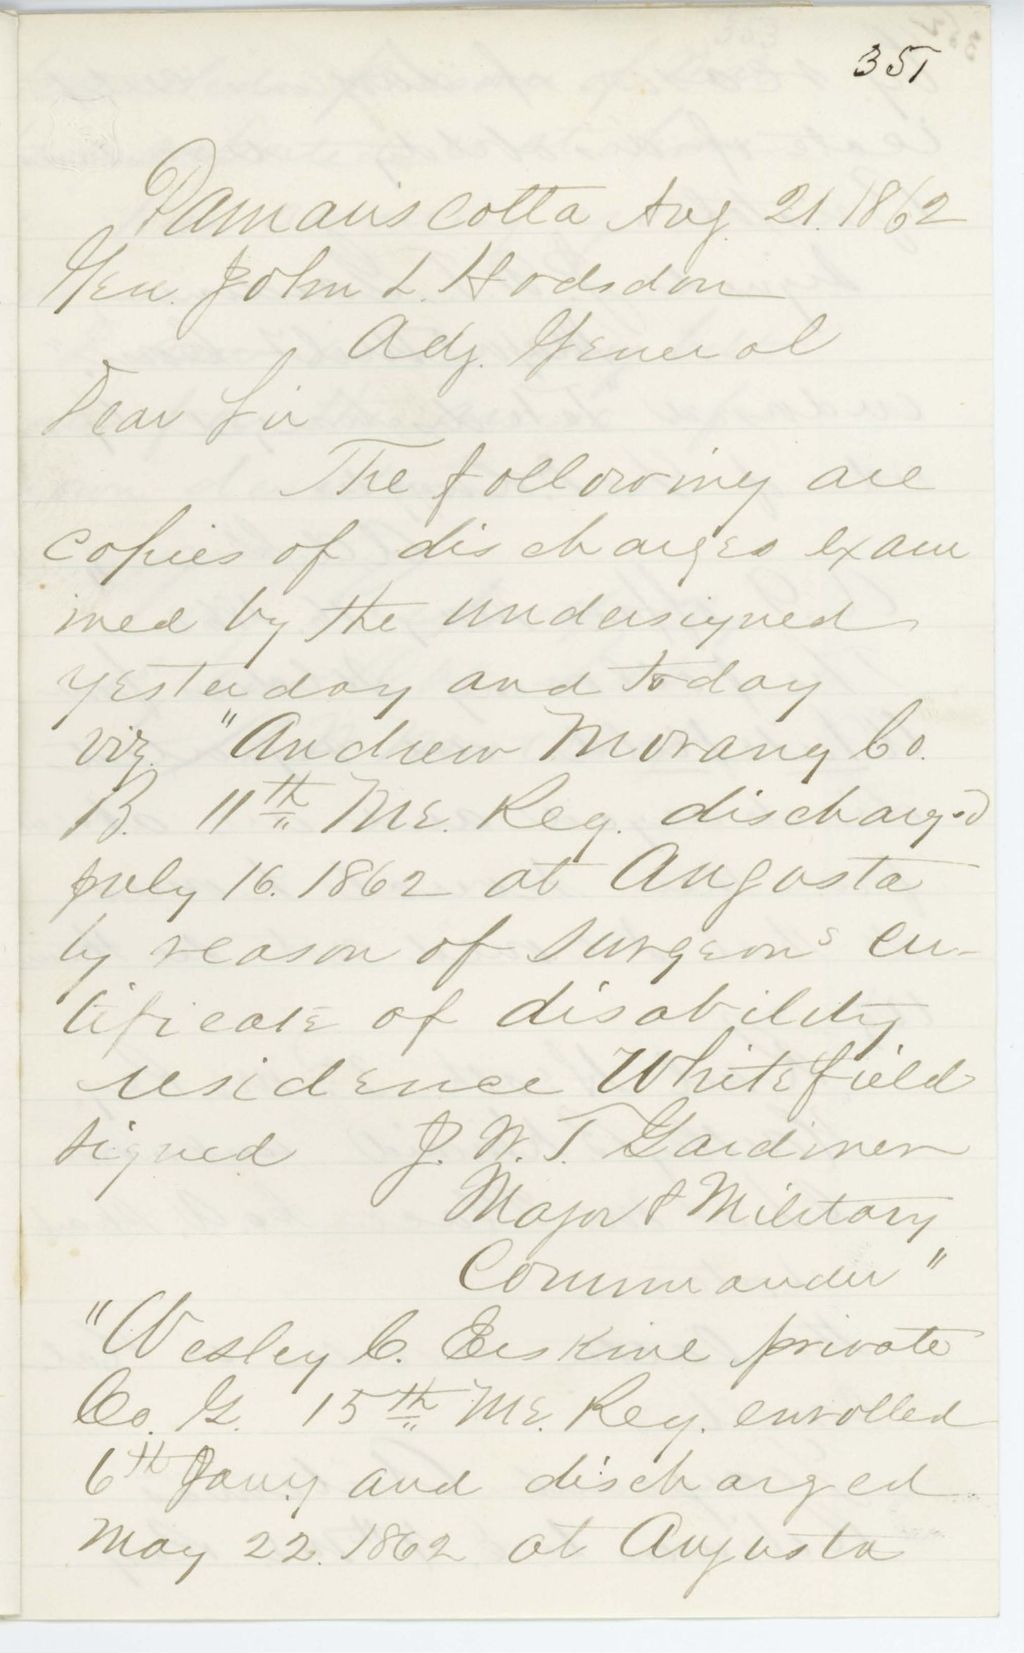 351
Damariscotta Aug. 21. 1862
Gen. John L. Hodsdon
Adj. General
Dear Sir
The following are
copies of discharges exam
ined by the undersigned
yesterday and today
viz. "Andrew Morang Co.
B. 11th Me. Reg. discharged
July 16. 1862 at Augusta
by reason of Surgeons cer-
tificate of disability
residence Whitefield
signed J. W. T. Gardiner
Major & Military
Commander"
"Wesley C. Erskine private
Co. G. 15th Me. Reg. enrolled
6th Jany and discharged
May 22. 1862 at Augusta